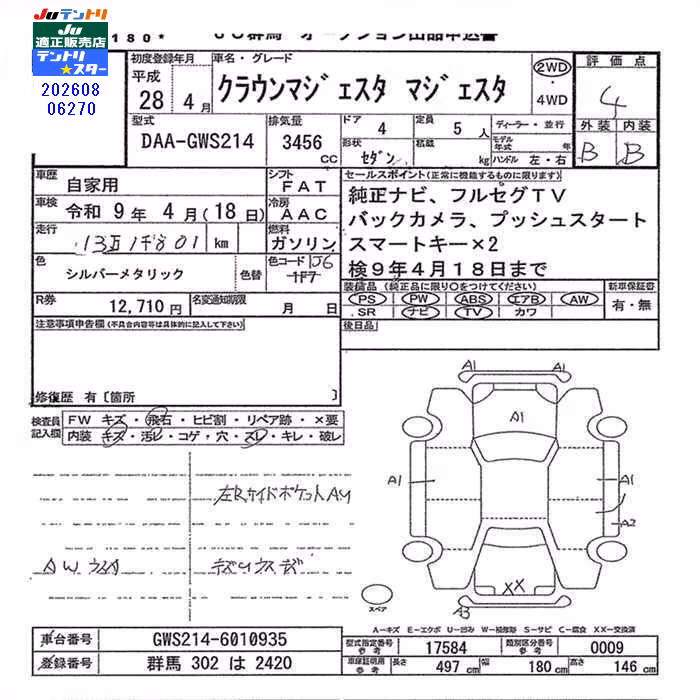 Juテントリ
Ju
適正販売店
テントリ
★スター
202608
06270
180*
JU群馬 オークション出品申込書
初度登録年月
平成
28 4月
車名・グレード
クラウンマジェスタ マジェスタ
2WD
・
4WD
評価点
4
外装 内装
B B
型式
DAA-GWS214
排気量
3456
cc
ドア 4
定員 5人
ディーラー・並行
形状
セダン
積載
kg
モデル年式 年
ハンドル 左・右
車歴
自家用
シフト
FAT
車検 令和 9年 4月(18日)
冷房
AAC
走行
km
燃料
ガソリン
色
シルバーメタリック
色替
色コード 1J6
1F7
R券
12,710円
名変通知期限
月 日
セールスポイント(正常に機能するものに限ります)
純正ナビ、フルセグTV
バックカメラ、プッシュスタート
スマートキー×2
検9年4月18日まで
装備品(純正品に限り○をつけてください)
PS PW ABS エアB AW
SR ナビ TV カワ
新車保証書
有・無
後日品
注意事項申告欄(不具合内容等は具体的に記入して下さい)
修復歴 有〔箇所 〕
検査員
記入欄
FW キズ・飛石・ヒビ割・リペア跡・×要
内装 キズ・汚レ・コゲ・穴・スレ・キレ・破レ
AW
A1
A1
A1
A1
A2
XX
A3
スペア
A-キズ E-エクボ U-凹み W-補修跡 S-サビ C-腐食 XX-交換済
車台番号 GWS214-6010935
登録番号 群馬 302 は 2420
型式指定番号
参考
17584
類別区分番号
参考
0009
車庫証明用
参考
長さ 497 cm
幅 180 cm
高さ 146 cm